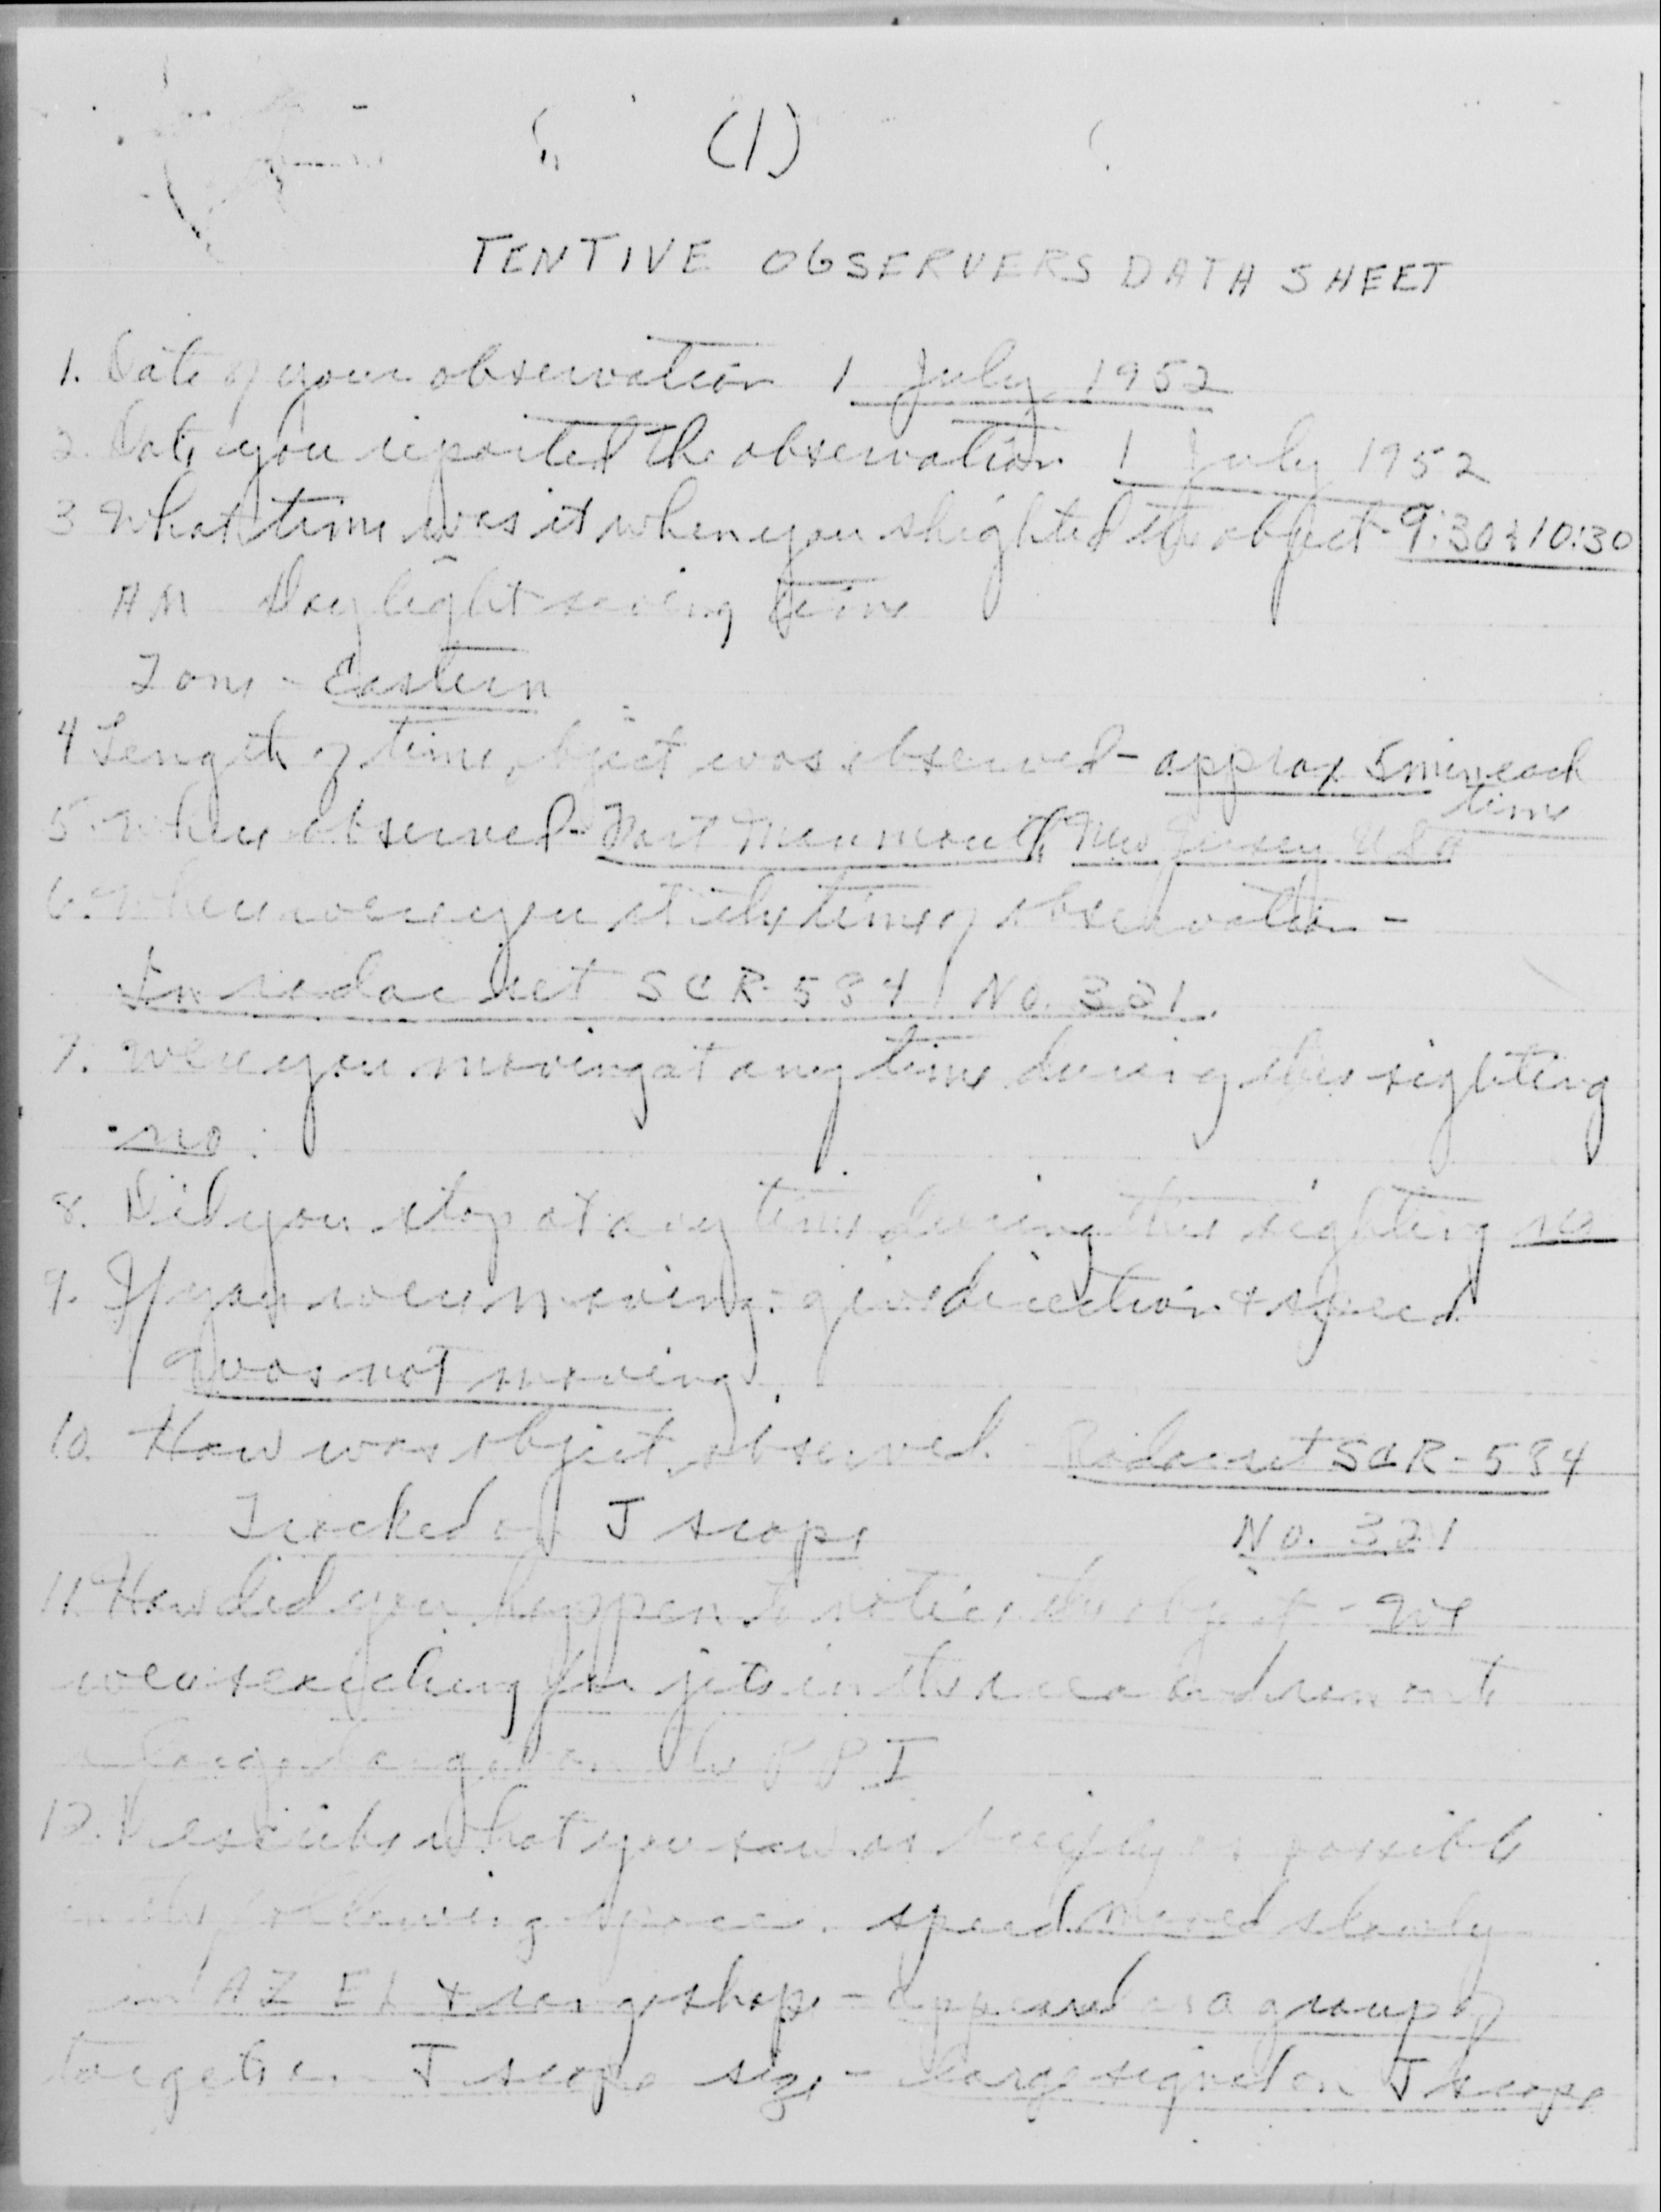 (1)
TENTIVE OBSERVERS DATA SHEET
1. Date of your observation 1 July 1952
2. Date you reported the observation 1 July 1952
3 What time was it when you shighted the object - 9:30 & 10:30
AM Daylight saving time
Zone - Eastern
4 Length of time object was observed - approx 5 min each
time
5. Where observed - Fort Monmouth, New Jersey USA
6. Where were you at the time of observation -
In radar set SCR-584 No. 321.
7. Were you moving at any time during this sighting
no.
8. Did you stop at any time during this sighting no
9. If you were moving, give direction & speed
I was not moving.
10. How was object observed - Radar set SCR-584
Tracked on J scope No. 321
11. How did you happen to notice the object - We
were searching for jets in the area and ran onto
a large target on the PPI
12. Describe what you saw as briefly as possible
in the following space. speed moved slowly
in AZ El & range shape - appeared as a group of
targets on J scope size - large signal on J scope